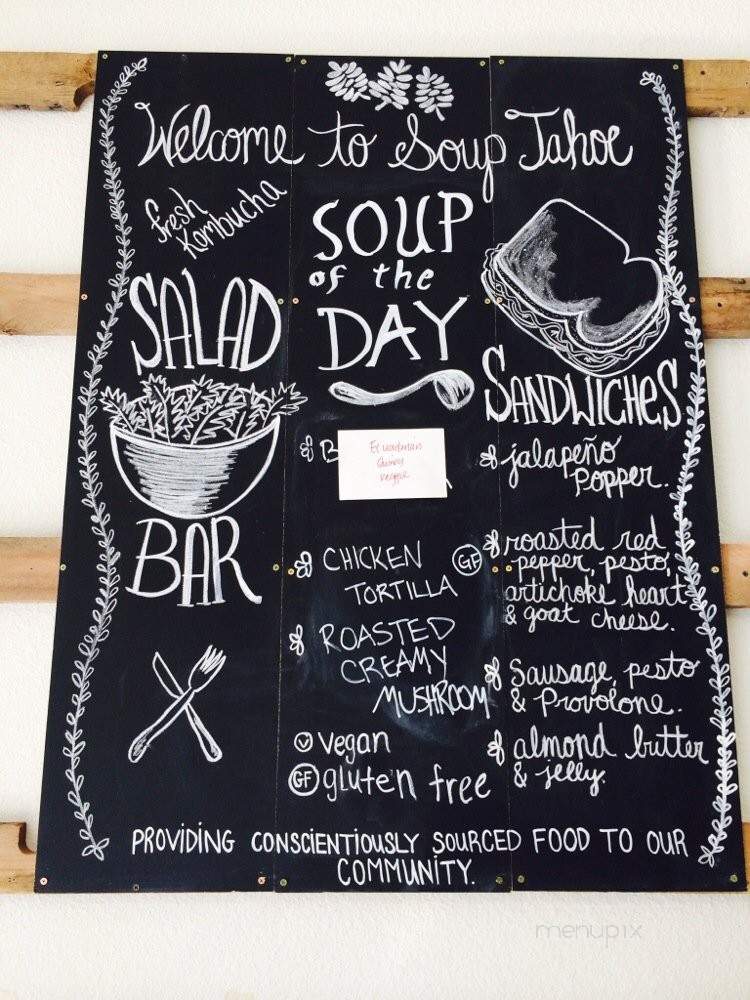 Welcome to Soup Tahoe
fresh
Kombucha
SALAD
BAR
SOUP
of the
DAY
veggie
CHICKEN GF
TORTILLA
ROASTED
CREAMY
MUSHROOM
V vegan
GF gluten free
SANDWICHES
jalapeño
popper.
roasted red
pepper, pesto,
artichoke heart
& goat cheese.
Sausage, pesto
& Provolone.
almond butter
& jelly.
PROVIDING CONSCIENTIOUSLY SOURCED FOOD TO OUR
COMMUNITY.
menupix